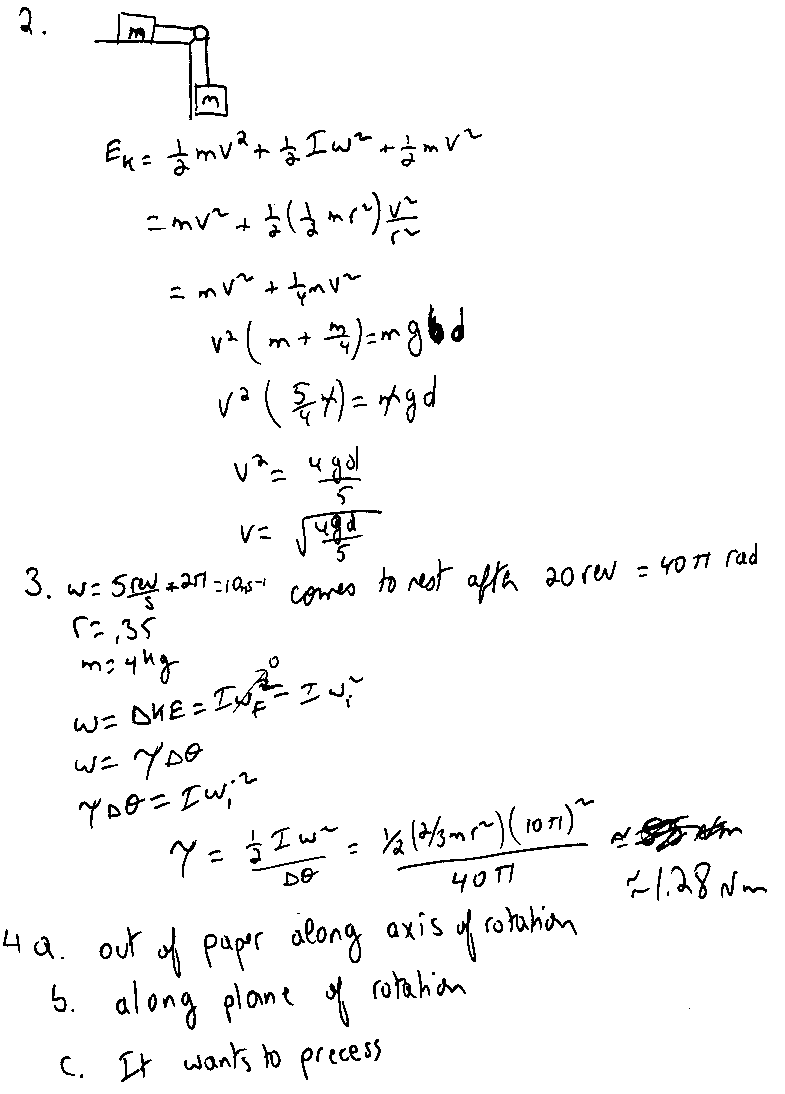 2.
m
m
E_K = 1/2 mv² + 1/2 Iω² + 1/2 mv²
= mv² + 1/2 (1/2 mr²) v²/r²
= mv² + 1/4 mv²
v² (m + m/4) = mg d
v² (5/4 m) = mgd
v² = 4gd/5
v = √(4gd/5)
3. ω = 5 rev/s * 2π = 10π s⁻¹ comes to rest after 20 rev = 40π rad
r = .35
m = 4kg
W = ΔKE = Iω_F² ⁰ = Iω_i²
W = τΔθ
τΔθ = Iω_i²
τ = 1/2 Iω² / Δθ = 1/2 (2/3 mr²)(10π)² / 40π ≈
≈ 1.28 Nm
4 a. out of paper along axis of rotation
b. along plane of rotation
c. It wants to precess